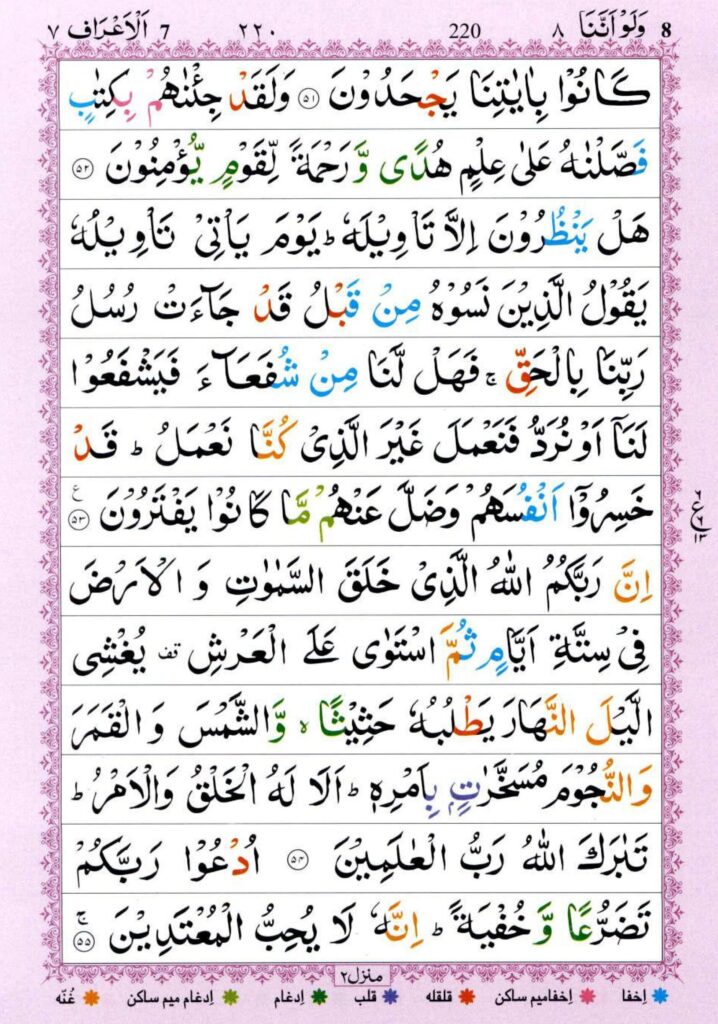 8 وَلَوْ اَنَّنَا ٨ 220 ٢٢٠ 7 اَلْاَعْرَاف ٧
كَانُوْا بِاٰيٰتِنَا يَجْحَدُوْنَ ﴿٥١﴾ وَلَقَدْ جِئْنٰهُمْ بِكِتٰبٍ
فَصَّلْنٰهُ عَلٰى عِلْمٍ هُدًى وَّ رَحْمَةً لِّقَوْمٍ يُّؤْمِنُوْنَ ﴿٥٢﴾
هَلْ يَنْظُرُوْنَ اِلَّا تَاْوِيْلَهٗ ؕ يَوْمَ يَاْتِىْ تَاْوِيْلُهٗ
يَقُوْلُ الَّذِيْنَ نَسُوْهُ مِنْ قَبْلُ قَدْ جَآءَتْ رُسُلُ
رَبِّنَا بِالْحَقِّ ۚ فَهَلْ لَّنَا مِنْ شُفَعَآءَ فَيَشْفَعُوْا
لَنَاۤ اَوْ نُرَدُّ فَنَعْمَلَ غَيْرَ الَّذِىْ كُنَّا نَعْمَلُ ؕ قَدْ
خَسِرُوْۤا اَنْفُسَهُمْ وَضَلَّ عَنْهُمْ مَّا كَانُوْا يَفْتَرُوْنَ ﴿٥٣﴾ ع
٦ ع ٦ ١٣
اِنَّ رَبَّكُمُ اللّٰهُ الَّذِىْ خَلَقَ السَّمٰوٰتِ وَ الْاَرْضَ
فِىْ سِتَّةِ اَيَّامٍ ثُمَّ اسْتَوٰى عَلَى الْعَرْشِ قف يُغْشِى
الَّيْلَ النَّهَارَ يَطْلُبُهٗ حَثِيْثًا ۙ وَّالشَّمْسَ وَ الْقَمَرَ
وَالنُّجُوْمَ مُسَخَّرٰتٍۢ بِاَمْرِهٖ ؕ اَلَا لَهُ الْخَلْقُ وَالْاَمْرُ ؕ
تَبٰرَكَ اللّٰهُ رَبُّ الْعٰلَمِيْنَ ﴿٥٤﴾ اُدْعُوْا رَبَّكُمْ
تَضَرُّعًا وَّ خُفْيَةً ؕ اِنَّهٗ لَا يُحِبُّ الْمُعْتَدِيْنَ ۚ ﴿٥٥﴾
منزل ٢
اِخفا اِخفامیم ساکن قلقله قلب اِدغام اِدغام میم ساکن غُنّه